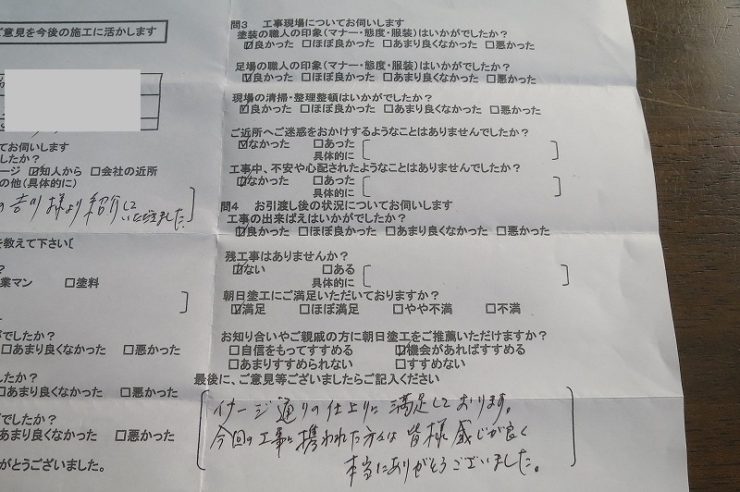 ご意見を今後の施工に活かします
てお伺いします
したか?
ージ ☑知人から □会社の近所
の他(具体的に)
様より紹介していただきました。
を教えて下さい[
?
業マン □塗料
でしたか?
□あまり良くなかった □悪かった
したか?
□あまり良くなかった □悪かった
でしたか?
あまり良くなかった □悪かった
がとうございました。
問3 工事現場についてお伺いします
塗装の職人の印象(マナー・態度・服装)はいかがでしたか?
☑良かった □ほぼ良かった □あまり良くなかった □悪かった
足場の職人の印象(マナー・態度・服装)はいかがでしたか?
☑良かった □ほぼ良かった □あまり良くなかった □悪かった
現場の清掃・整理整頓はいかがでしたか?
☑良かった □ほぼ良かった □あまり良くなかった □悪かった
ご近所へご迷惑をおかけするようなことはありませんでしたか?
☑なかった □あった
具体的に
工事中、不安や心配されたようなことはありませんでしたか?
☑なかった □あった
具体的に
問4 お引渡し後の状況についてお伺いします
工事の出来ばえはいかがでしたか?
☑良かった □ほぼ良かった □あまり良くなかった □悪かった
残工事はありませんか?
☑ない □ある
具体的に
朝日塗工にご満足いただいておりますか?
☑満足 □ほぼ満足 □やや不満 □不満
お知り合いやご親戚の方に朝日塗工をご推薦いただけますか?
□自信をもってすすめる ☑機会があればすすめる
□あまりすすめられない □すすめない
最後に、ご意見等ございましたらご記入ください
イメージ通りの仕上りに満足しております。
今回の工事に携われた方々は皆様感じが良く
本当にありがとうございました。